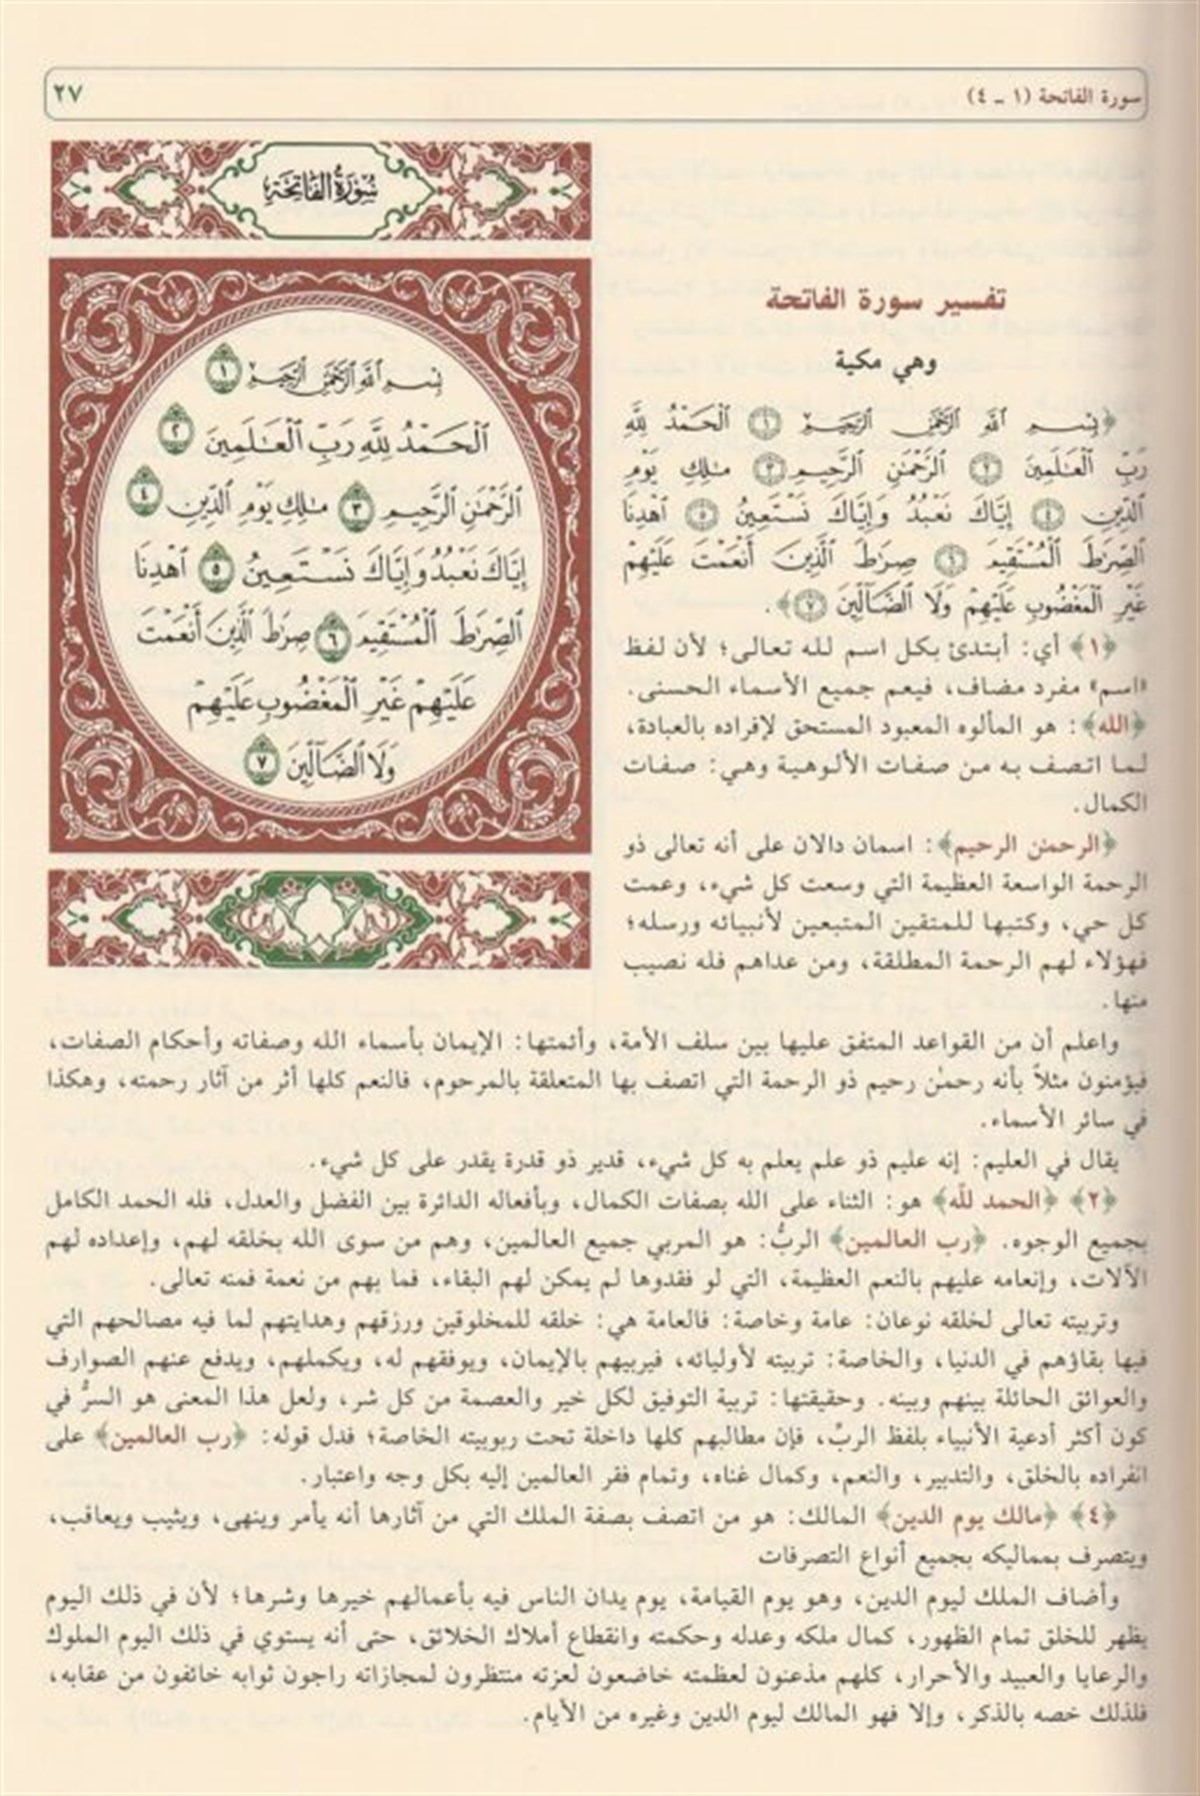 سورة الفاتحة (١ - ٤)
٢٧
سُورَةُ الفَاتِحَةِ
بِسْمِ ٱللَّهِ ٱلرَّحْمَٰنِ ٱلرَّحِيمِ ١
ٱلْحَمْدُ لِلَّهِ رَبِّ ٱلْعَٰلَمِينَ ٢
ٱلرَّحْمَٰنِ ٱلرَّحِيمِ ٣ مَٰلِكِ يَوْمِ ٱلدِّينِ ٤
إِيَّاكَ نَعْبُدُ وَإِيَّاكَ نَسْتَعِينُ ٥ ٱهْدِنَا
ٱلصِّرَٰطَ ٱلْمُسْتَقِيمَ ٦ صِرَٰطَ ٱلَّذِينَ أَنْعَمْتَ
عَلَيْهِمْ غَيْرِ ٱلْمَغْضُوبِ عَلَيْهِمْ
وَلَا ٱلضَّآلِّينَ ٧
تفسير سورة الفاتحة
وهي مكية
﴿بِسْمِ ٱللَّهِ ٱلرَّحْمَٰنِ ٱلرَّحِيمِ ١ ٱلْحَمْدُ لِلَّهِ
رَبِّ ٱلْعَٰلَمِينَ ٢ ٱلرَّحْمَٰنِ ٱلرَّحِيمِ ٣ مَٰلِكِ يَوْمِ
ٱلدِّينِ ٤ إِيَّاكَ نَعْبُدُ وَإِيَّاكَ نَسْتَعِينُ ٥ ٱهْدِنَا
ٱلصِّرَٰطَ ٱلْمُسْتَقِيمَ ٦ صِرَٰطَ ٱلَّذِينَ أَنْعَمْتَ عَلَيْهِمْ
غَيْرِ ٱلْمَغْضُوبِ عَلَيْهِمْ وَلَا ٱلضَّآلِّينَ ٧﴾.
﴿١﴾ أي: أبتدئ بكل اسم لله تعالى؛ لأن لفظ
«اسم» مفرد مضاف، فيعم جميع الأسماء الحسنى.
﴿الله﴾: هو المألوه المعبود المستحق لإفراده بالعبادة،
لما اتصف به من صفات الألوهية وهي: صفات
الكمال.
﴿الرحمٰن الرحيم﴾: اسمان دالان على أنه تعالى ذو
الرحمة الواسعة العظيمة التي وسعت كل شيء، وعمت
كل حي، وكتبها للمتقين المتبعين لأنبيائه ورسله؛
فهؤلاء لهم الرحمة المطلقة، ومن عداهم فله نصيب
منها.
واعلم أن من القواعد المتفق عليها بين سلف الأمة، وأئمتها: الإيمان بأسماء الله وصفاته وأحكام الصفات،
فيؤمنون مثلاً بأنه رحمٰن رحيم ذو الرحمة التي اتصف بها المتعلقة بالمرحوم، فالنعم كلها أثر من آثار رحمته، وهكذا
في سائر الأسماء.
يقال في العليم: إنه عليم ذو علم يعلم به كل شيء، قدير ذو قدرة يقدر على كل شيء.
﴿٢﴾ ﴿الحمد لله﴾ هو: الثناء على الله بصفات الكمال، وبأفعاله الدائرة بين الفضل والعدل، فله الحمد الكامل
بجميع الوجوه. ﴿رب العالمين﴾ الربُّ: هو المربي جميع العالمين، وهم من سوى الله بخلقه لهم، وإعداده لهم
الآلات، وإنعامه عليهم بالنعم العظيمة، التي لو فقدوها لم يمكن لهم البقاء، فما بهم من نعمة فمنه تعالى.
وتربيته تعالى لخلقه نوعان: عامة وخاصة: فالعامة هي: خلقه للمخلوقين ورزقهم وهدايتهم لما فيه مصالحهم التي
فيها بقاؤهم في الدنيا، والخاصة: تربيته لأوليائه، فيربيهم بالإيمان، ويوفقهم له، ويكملهم، ويدفع عنهم الصوارف
والعوائق الحائلة بينهم وبينه. وحقيقتها: تربية التوفيق لكل خير والعصمة من كل شر، ولعل هذا المعنى هو السرُّ في
كون أكثر أدعية الأنبياء بلفظ الربِّ، فإن مطالبهم كلها داخلة تحت ربوبيته الخاصة؛ فدل قوله: ﴿رب العالمين﴾ على
انفراده بالخلق، والتدبير، والنعم، وكمال غناه، وتمام فقر العالمين إليه بكل وجه واعتبار.
﴿٤﴾ ﴿مالك يوم الدين﴾ المالك: هو من اتصف بصفة الملك التي من آثارها أنه يأمر وينهى، ويثيب ويعاقب،
ويتصرف بمماليكه بجميع أنواع التصرفات
وأضاف الملك ليوم الدين، وهو يوم القيامة، يوم يدان الناس فيه بأعمالهم خيرها وشرها؛ لأن في ذلك اليوم
يظهر للخلق تمام الظهور، كمال ملكه وعدله وحكمته وانقطاع أملاك الخلائق، حتى أنه يستوي في ذلك اليوم الملوك
والرعايا والعبيد والأحرار، كلهم مذعنون لعظمته خاضعون لعزته منتظرون لمجازاته راجون ثوابه خائفون من عقابه،
فلذلك خصه بالذكر، وإلا فهو المالك ليوم الدين وغيره من الأيام.